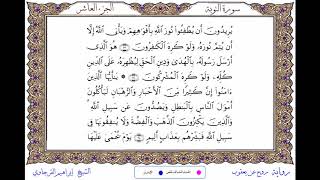 سورة التوبة الجزء العاشر
يُرِيدُونَ أَن يُطْفِـُٔوا۟ نُورَ ٱللَّهِ بِأَفْوَٰهِهِمْ وَيَأْبَى ٱللَّهُ إِلَّآ
أَن يُتِمَّ نُورَهُۥ وَلَوْ كَرِهَ ٱلْكَٰفِرُونَ هُوَ ٱلَّذِىٓ
أَرْسَلَ رَسُولَهُۥ بِٱلْهُدَىٰ وَدِينِ ٱلْحَقِّ لِيُظْهِرَهُۥ عَلَى ٱلدِّينِ
كُلِّهِۦ وَلَوْ كَرِهَ ٱلْمُشْرِكُونَ ۞ يَٰٓأَيُّهَا ٱلَّذِينَ
ءَامَنُوٓا۟ إِنَّ كَثِيرًا مِّنَ ٱلْأَحْبَارِ وَٱلرُّهْبَانِ لَيَأْكُلُونَ
أَمْوَٰلَ ٱلنَّاسِ بِٱلْبَٰطِلِ وَيَصُدُّونَ عَن سَبِيلِ ٱللَّهِ
وَٱلَّذِينَ يَكْنِزُونَ ٱلذَّهَبَ وَٱلْفِضَّةَ وَلَا يُنفِقُونَهَا فِى
سَبِيلِ ٱللَّهِ فَبَشِّرْهُم بِعَذَابٍ أَلِيمٍ يَوْمَ يُحْمَىٰ عَلَيْهَا
رواية روح عن يعقوب الشيخ إبراهيم